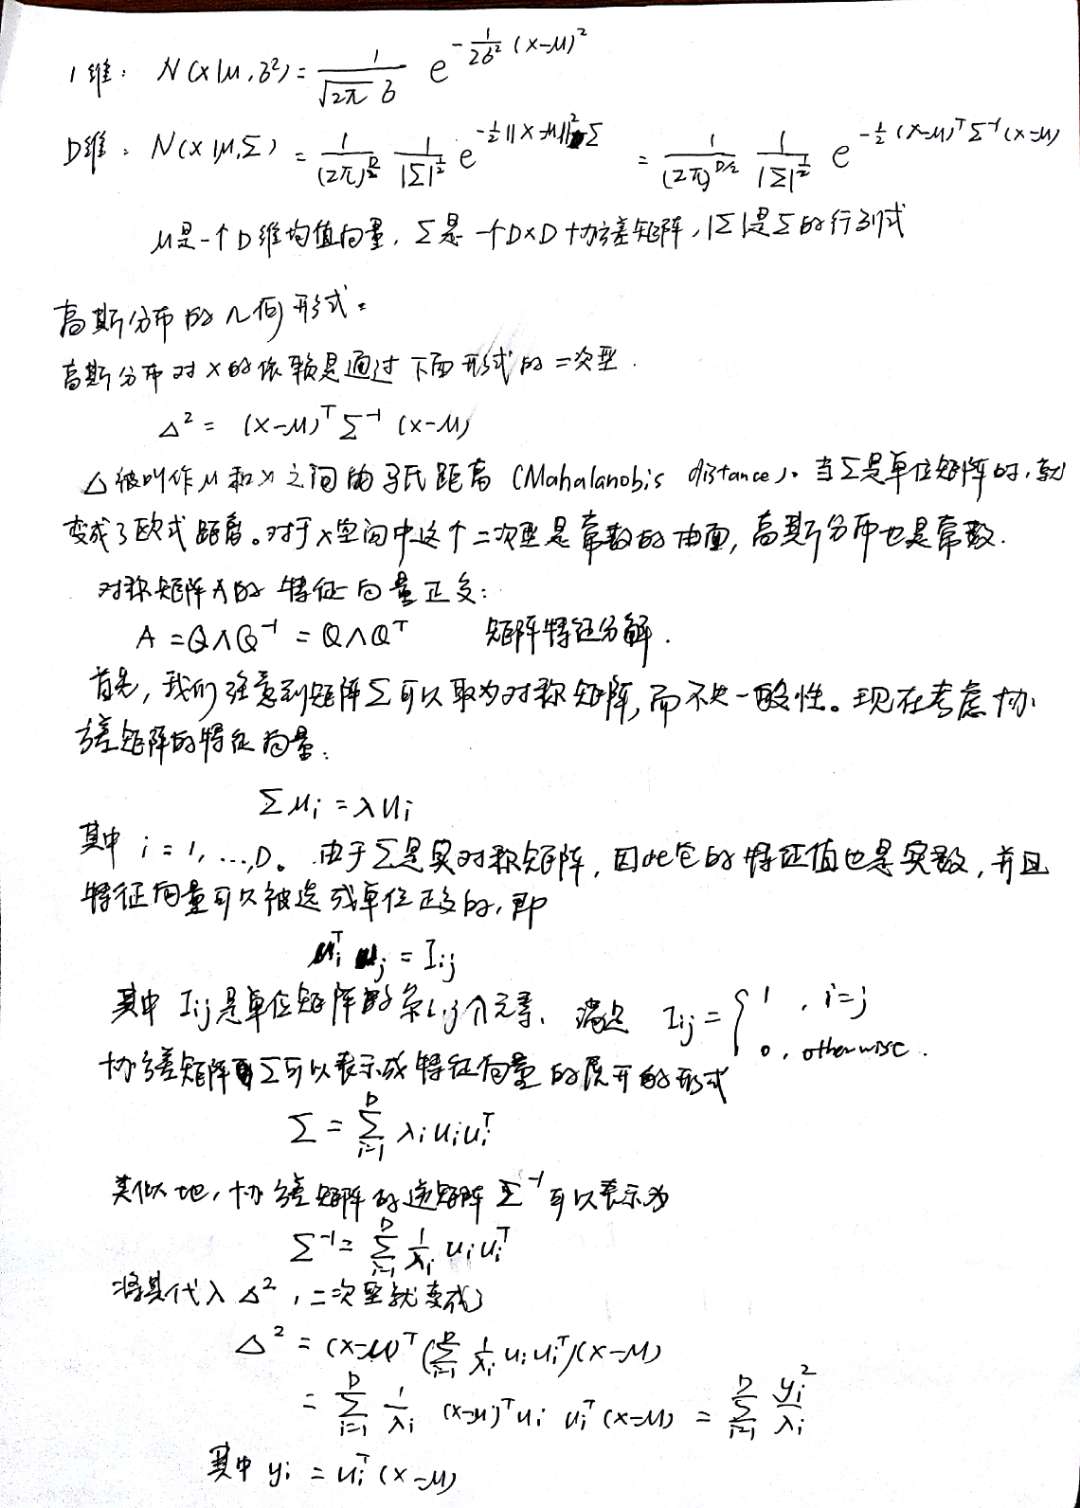 1维: N(x|μ,σ²) = 1/(√2π σ) e^{-1/(2σ²) (x-μ)²}
D维: N(x|μ,Σ) = 1/(2π)^{D/2} 1/|Σ|^{1/2} e^{-1/2||x-μ||²_Σ} = 1/(2π)^{D/2} 1/|Σ|^{1/2} e^{-1/2(x-μ)^T Σ^{-1}(x-μ)}
μ是一个D维均值向量, Σ是一个D×D协方差矩阵, |Σ|是Σ的行列式
高斯分布的几何形式:
高斯分布对x的依赖是通过下面形式的二次型.
Δ² = (x-μ)^T Σ^{-1} (x-μ)
Δ被叫作μ和x之间的马氏距离(Mahalanobis distance)。当Σ是单位矩阵时,就
变成了欧式距离。对于x空间中这个二次型是常数的曲面, 高斯分布也是常数.
对称矩阵A的特征向量正交:
A = QΛQ^{-1} = QΛQ^T 矩阵特征分解.
首先, 我们注意到矩阵Σ可以取为对称矩阵, 而不失一般性。现在考虑协
方差矩阵的特征向量:
Σu_i = λu_i
其中 i = 1, ..., D。由于Σ是实对称矩阵, 因此它的特征值也是实数, 并且
特征向量可以被选成单位正交的, 即
u_i^T u_j = I_{ij}
其中 I_{ij}是单位矩阵的第i,j个元素、满足 I_{ij} = { 1, i=j
0, otherwise.
协方差矩阵Σ可以表示成特征向量的展开的形式
Σ = Σ_{i=1}^{D} λ_i u_i u_i^T
类似地, 协方差矩阵的逆矩阵Σ^{-1}可以表示为
Σ^{-1} = Σ_{i=1}^{D} 1/λ_i u_i u_i^T
将其代入Δ², 二次型就变成了
Δ² = (x-μ)^T (Σ_{i=1}^{D} 1/λ_i u_i u_i^T)(x-μ)
= Σ_{i=1}^{D} 1/λ_i (x-μ)^T u_i u_i^T (x-μ) = Σ_{i=1}^{D} y_i²/λ_i
其中 y_i = u_i^T (x-μ)